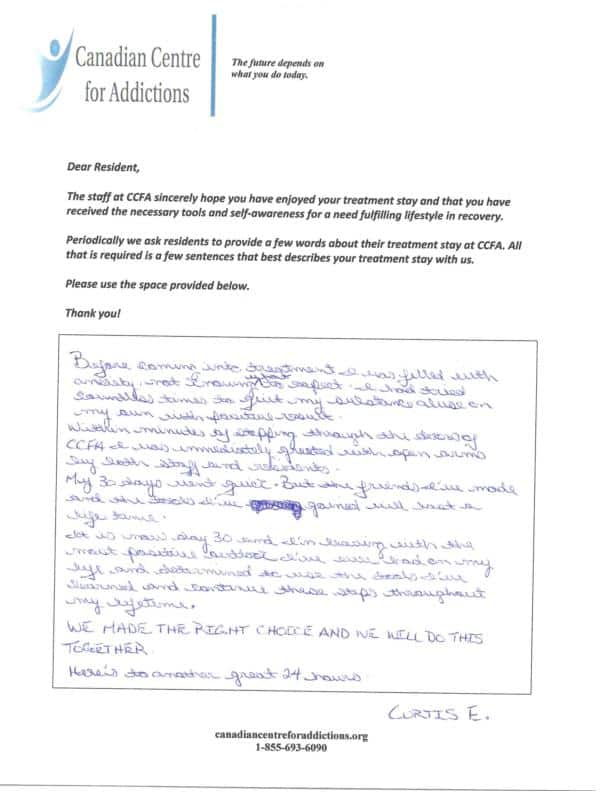 Canadian Centre
for Addictions
The future depends on
what you do today.
Dear Resident,
The staff at CCFA sincerely hope you have enjoyed your treatment stay and that you have
received the necessary tools and self-awareness for a need fulfilling lifestyle in recovery.
Periodically we ask residents to provide a few words about their treatment stay at CCFA. All
that is required is a few sentences that best describes your treatment stay with us.
Please use the space provided below.
Thank you!
Before coming into treatment I was filled with
anxiety, not knowing what to expect. I had tried
countless times to quit my substance abuse on
my own with positive result.
Within minutes of stepping through the doors of
CCFA I was immediately greeted with open arms
by both staff and residents.
My 30 days went quick. But the friends I've made
and the tools I've gained will last a
life time.
It is now day 30 and I'm leaving with the
most positive outlook I've ever had on my
life and determined to use the tools I've
learned and continue these steps throughout
my lifetime.
WE MADE THE RIGHT CHOICE AND WE WILL DO THIS
TOGETHER.
Here's to another great 24 hours.
CURTIS E.
canadiancentreforaddictions.org
1-855-693-6090